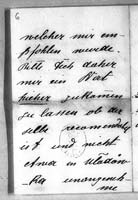 6
welcher mir em-
pfohlen wurde.
Bitte Sich daher
mir ein Blatt
hieher zukommen
zu lassen ob der
selbe recomendirt
ist und nicht
etwa in
unangeneh-
me